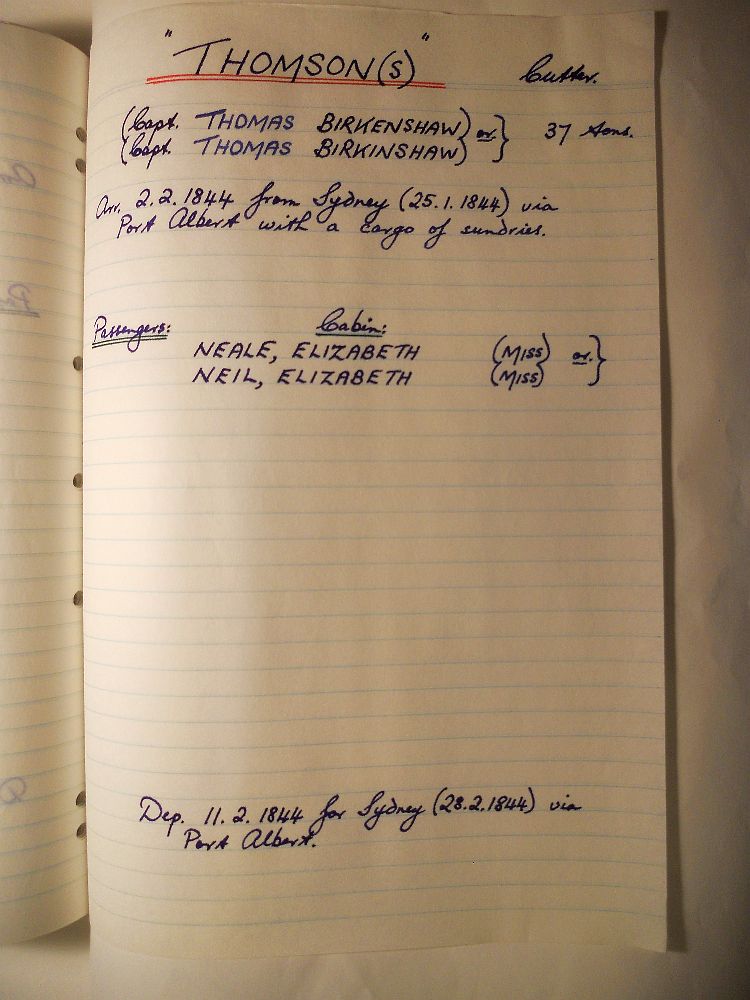 "THOMSON(S)" Cutter.
(Capt. THOMAS BIRKENSHAW) or } 37 tons.
(Capt. THOMAS BIRKINSHAW)
Arr. 2.2.1844 from Sydney (25.1.1844) via
Port Albert with a cargo of sundries.
Passengers: Cabin:
NEALE, ELIZABETH (MISS) or }
NEIL, ELIZABETH (MISS)
Dep. 11.2.1844 for Sydney (28.2.1844) via
Port Albert.